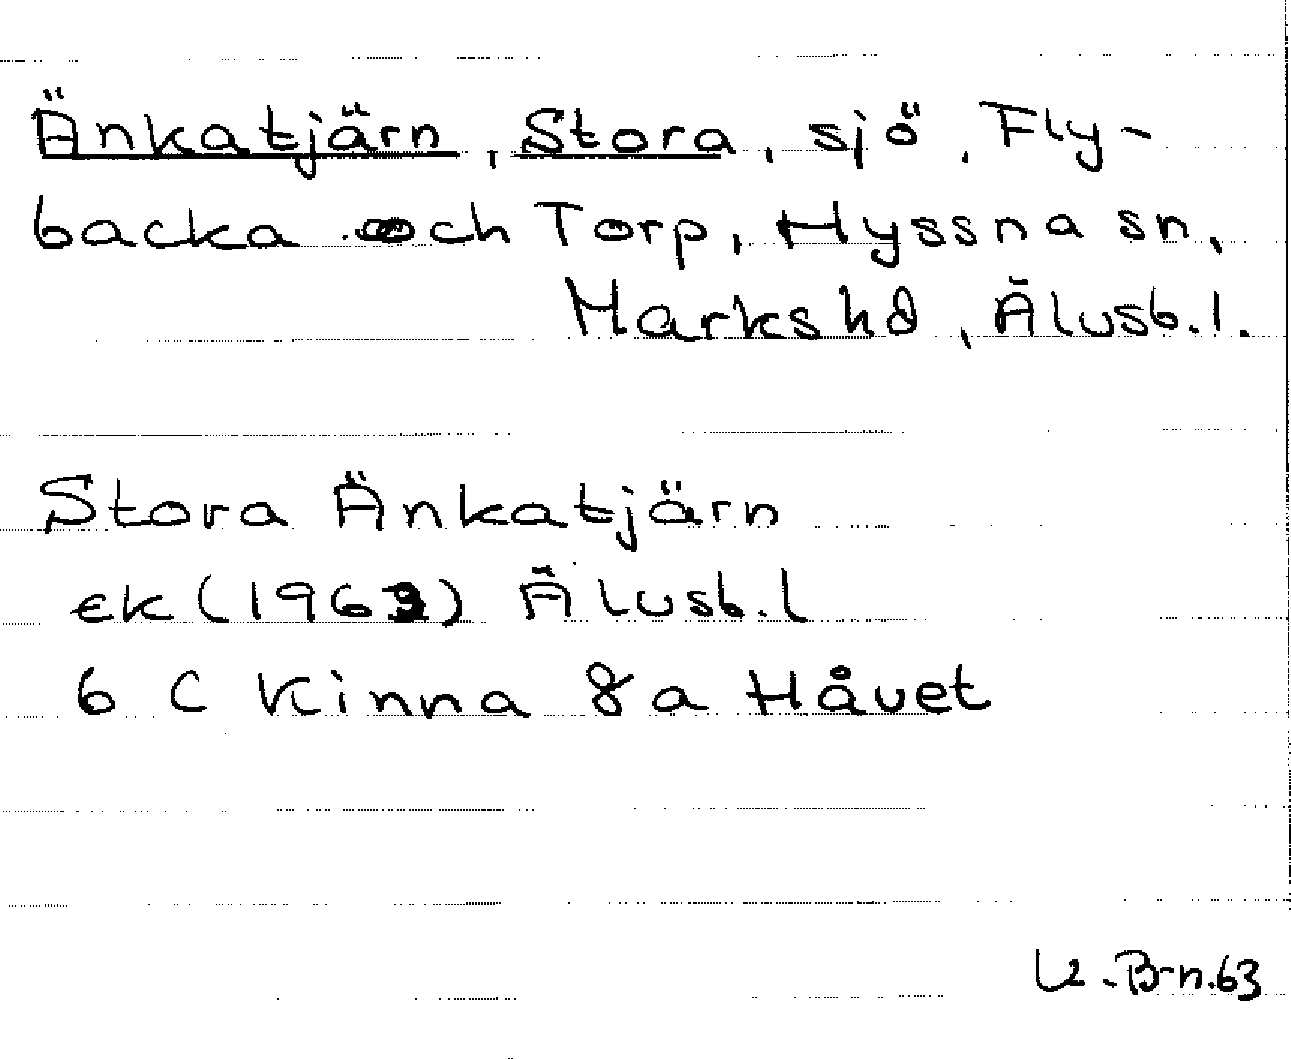 Änkatjärn, Stora, sjö, Fly-
backa och Torp, Hyssna sn,
Markshd, Älvsb.l.
Stora Änkatjärn
EK (1963) Älvsb.l
6 C Kinna 8a Håvet
B-n.63